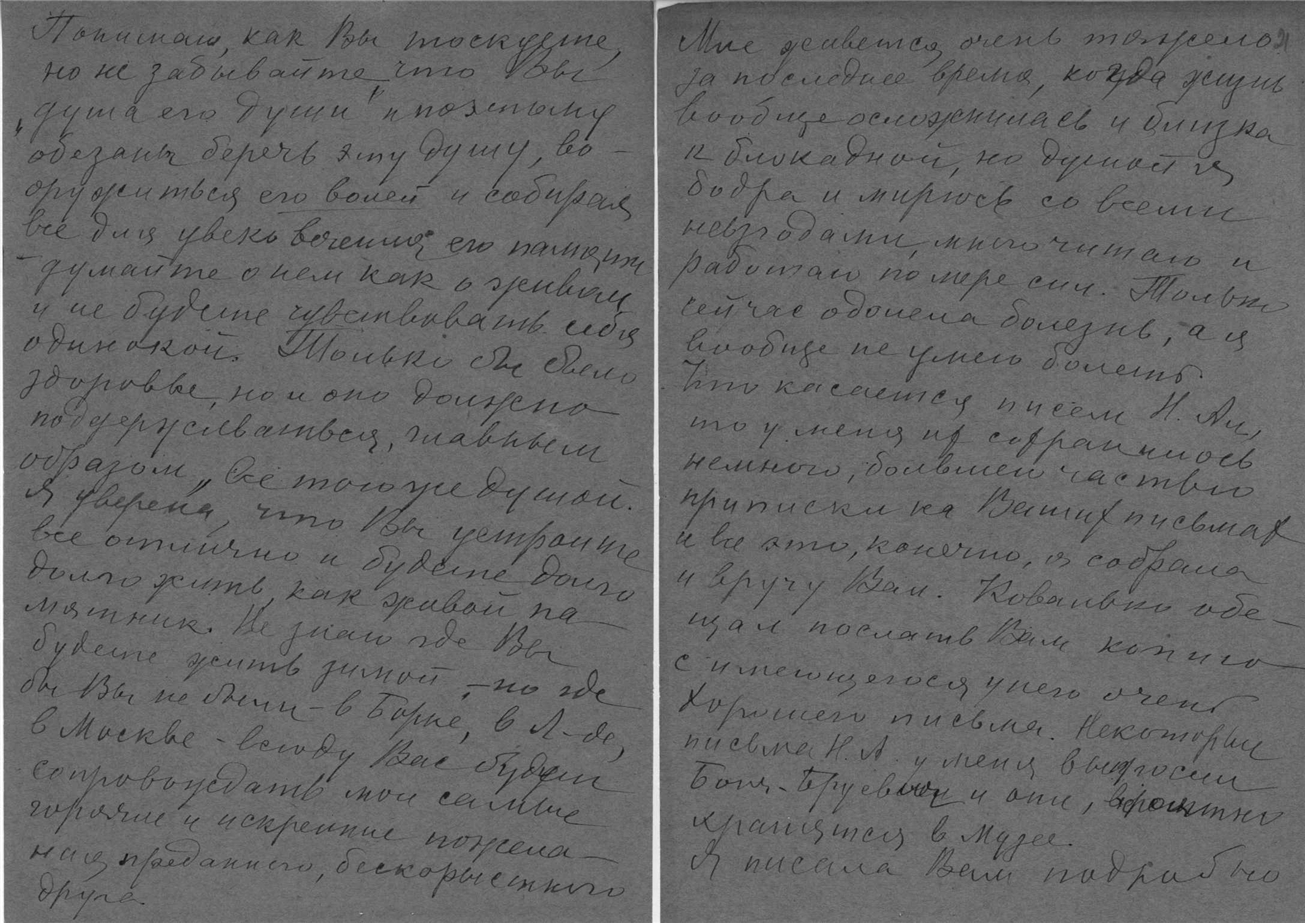 Понимаю, как Вы тоскуете,
но не забывайте, что Вы
„душа его души" и поэтому
обязаны беречь эту душу, во-
оружиться его волей и собирая
все для увековечения его памяти
- думайте о нем как о живом
и не будете чувствовать себя
одинокой. Только бы было
здоровье, но и оно должно
поддерживаться, главным
образом, все тою же душой.
Я уверена, что Вы устроите
все отлично и будете долго
долго жить, как живой па-
мятник. Не знаю где Вы
будете жить зимой, - но где
бы Вы не были - в Борке, в Л-де,
в Москве - всюду Вас будут
сопровождать мои самые
горячие и искренние пожела-
ния преданного, бескорыстного
друга.
Мне живется очень тяжело
за последнее время, когда жизнь
вообще осложнилась и близка
к блокадной, но душой я
бодра и мирюсь со всеми
невзгодами, много читаю и
работаю по мере сил. Только
сейчас одолела болезнь, а я
вообще не умею болеть.
Что касается писем Н. Ал,
то у меня их сохранилось
немного, большею частью
приписки на Ваших письмах
и все это, конечно, я собрала
и вручу Вам. Ковалько обе-
щал послать Вам копию
с имеющегося у него очень
хорошего письма. Некоторые
письма Н. А. у меня выпросил
Бонч-Бруевич и они, вероятно
хранятся в Музее.
Я писала Вам подробно